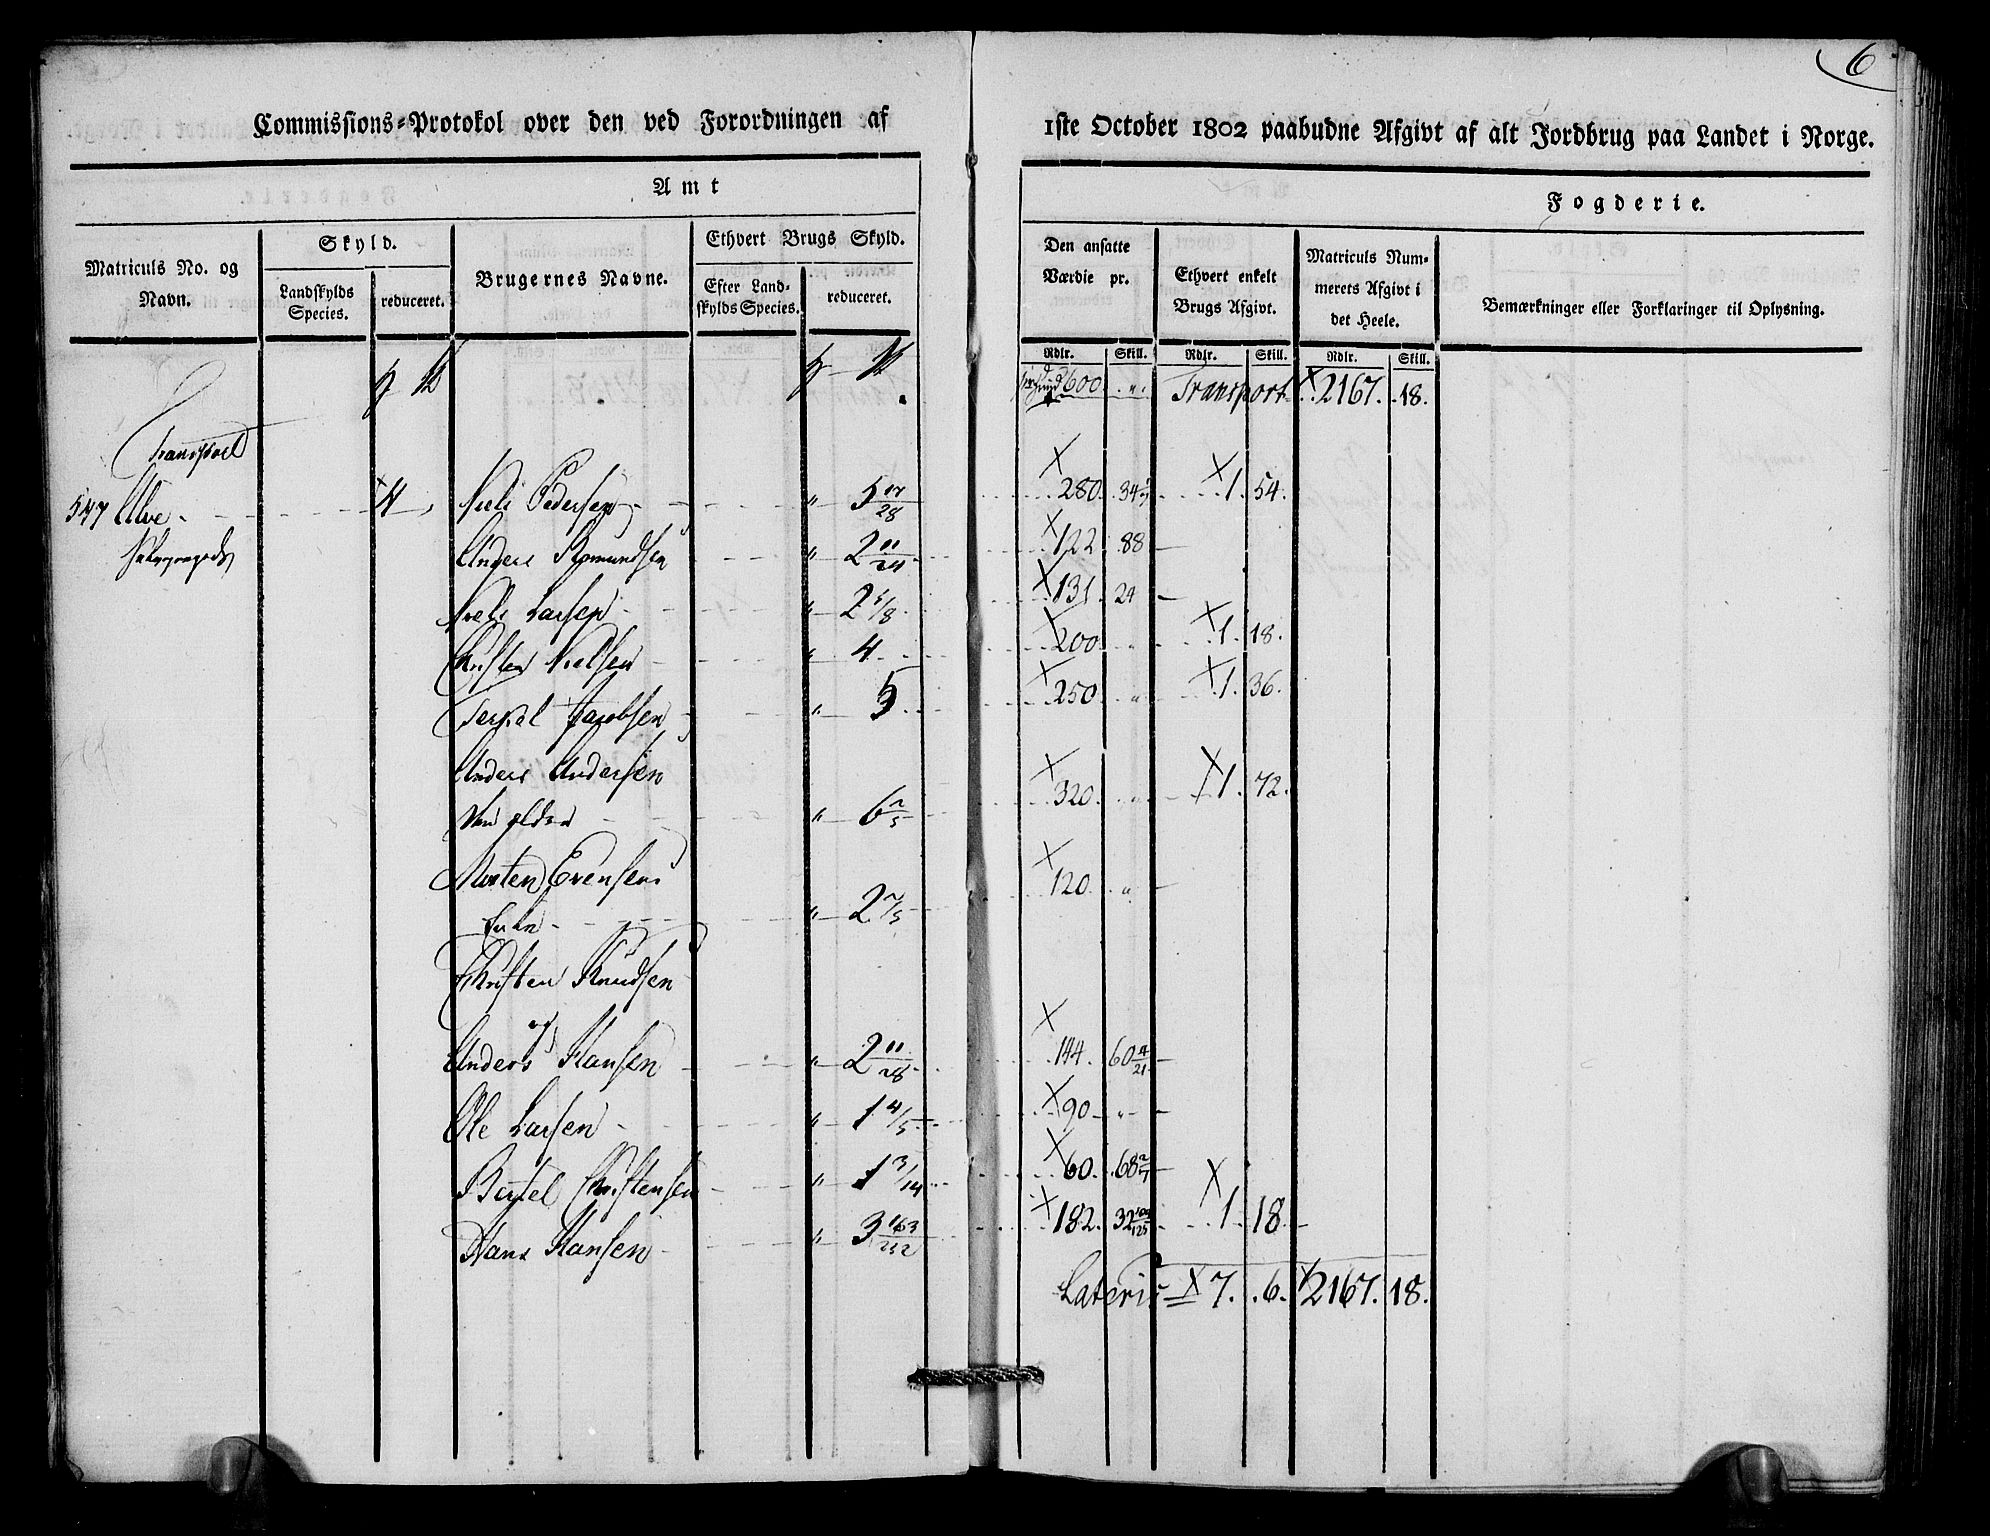 6
Commissions-Protokol over den ved Forordningen af 1ste October 1802 paabudne Afgivt af alt Jordbrug paa Landet i Norge.
Amt Fogderie.
Matriculs No. og Navn.
Skyld.
Landskylds Species.
reduceret.
Brugernes Navne.
Ethvert Brugs Skyld.
Efter Landskylds Species.
reduceret.
Den ansatte Værdie pr.
Ethvert enkelt Brugs Afgivt.
Matriculs Nummerets Afgivt i det Heele.
Bemærkninger eller Forklaringer til Oplysning.
Rdlr. Skill. Rdlr. Skill. Rdlr. Skill.
600 " Transport 2167. 18.
Transport
547 Alve 4 Niels Pedersen " 5 17/28 280. 34 2/7 1. 54.
Anders Romundsen " 2 11/24 122 88
Niels Larsen " 2 5/8 131. 24
Christen Nielsen " 4 200 " 1. 18.
Terkel Jacobsen " 5 250 " 1. 36.
Anders Andersen
den eldre " 6 2/5 320. " 1. 72.
Morten Evensens
Enke " 2 2/5 120 "
Christen Knudsen
og
Anders Hansen " 2 11/28 144. 60 4/21
Ole Larsen " 1 4/5 90 "
Bertel Christensen " 1 3/14 60. 68 2/7
Hans Hansen " 3 163/252 182. 32 1. 18
Lateris 7. 6. 2167. 18.